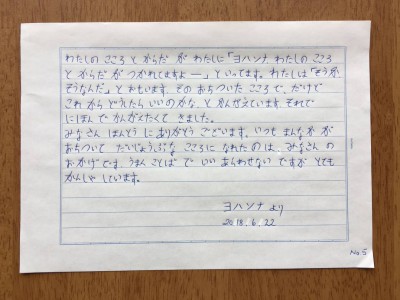 わたしの こころ と からだ が わたしに「ヨハンナ、わたしの こころ
と からだ が つかれてますよ ー」と いってます。わたしは「そうか、
そうなんだ」と おもいます。その おちついた こころ で、だけど
これ から どうしたら いいのかな、と かんがえています。それで
にほん で かんがえたくて きました。
みなさん ほんとうに ありがとう ございます。いつも まんなか が
おちついて だいじょうぶな こころに なれた のは、みなさんの
おかげです。うまく ことば で いい あらわせない ですが とても
かんしゃ しています。
ヨハンナ より
2018.6.22
No.5